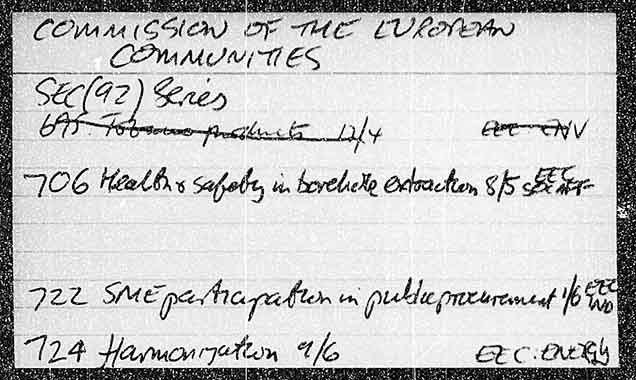 COMMISSION OF THE EUROPEAN
COMMUNITIES
SEC(92) Series
695. Tobacco products 12/4 EEC ENV
706 Health & safety in borehole extraction 8/5 EEC
722 SME participation in public procurement 1/6 EEC
IND
724 Harmonization 9/6 EEC: ENERGY